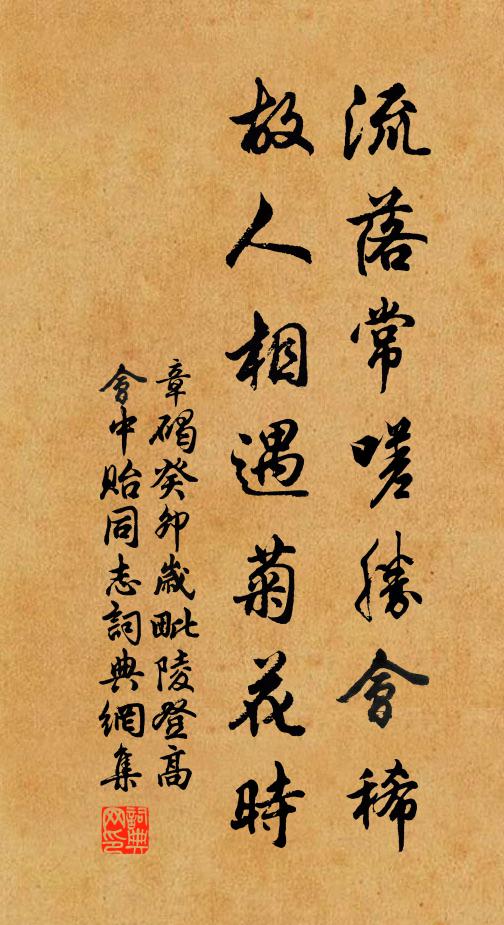 流落常嗟勝會稀
故人相遇菊花時
章碣癸卯歲毗陵登高
會中貽同志詞典網集
詞典网印